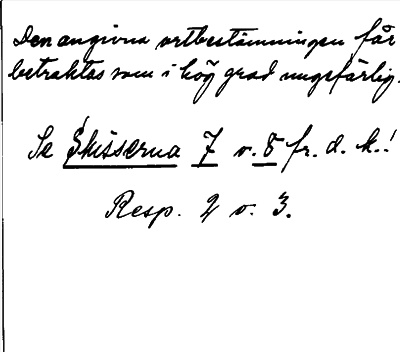 Den angivna ortbestämningen får
betraktas som i hög grad ungefärlig.
Se Skisserna 7 o. 8 fr. d. k.!
Resp. 2 o. 3.